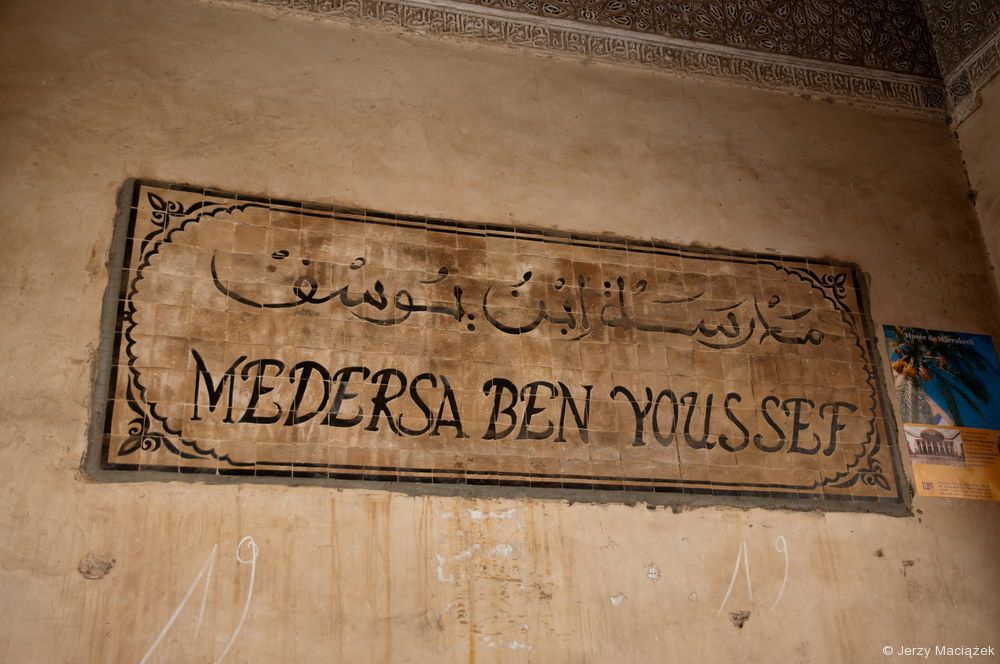 مَدْرَسَة اِبْنُ يُوسُفْ
MEDERSA BEN YOUSSEF
Musée de Marrakech
19
19
© Jerzy Maciążek